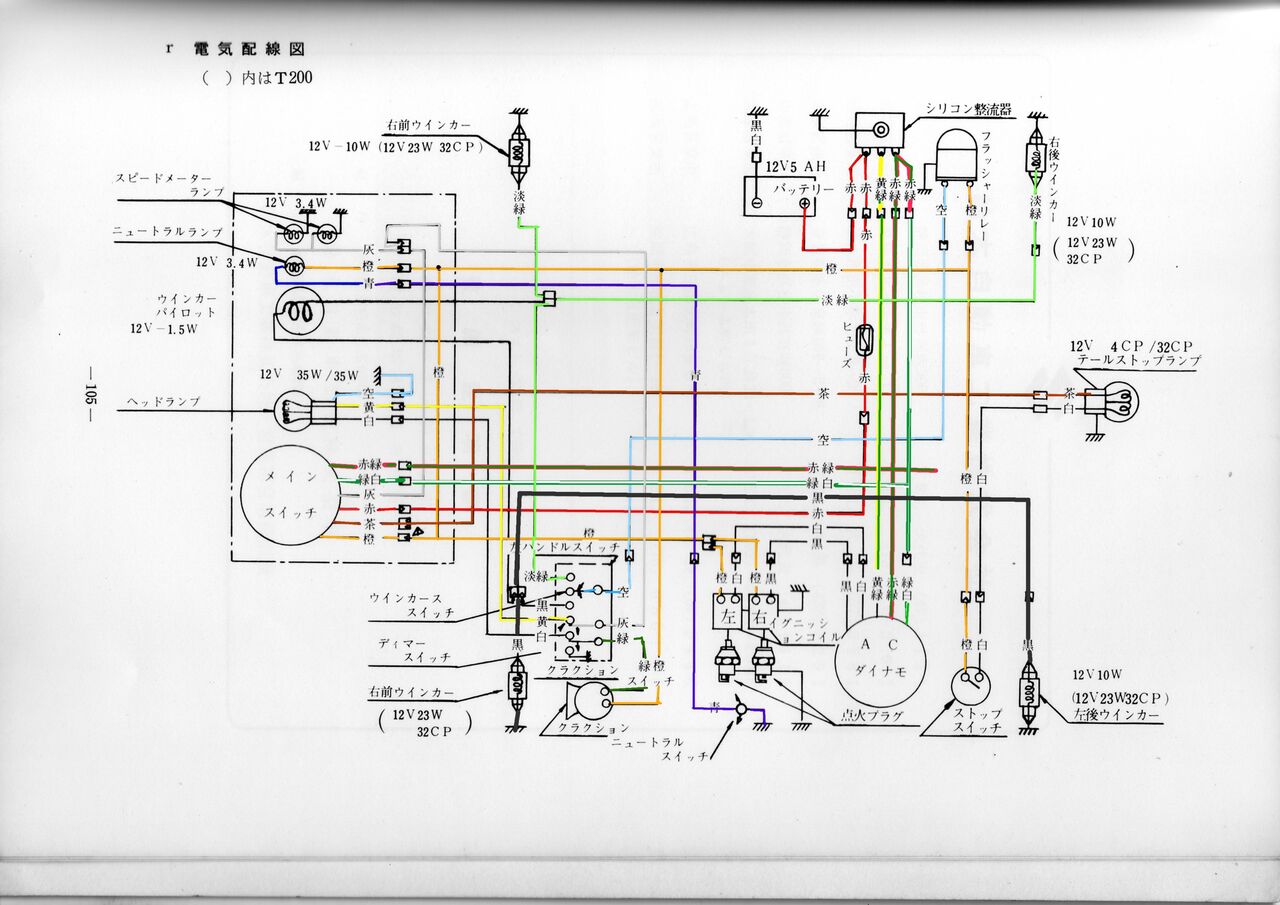 r 電気配線図
( ) 内はT200
右前ウインカー
12V－10W (12V23W 32CP)
淡緑
スピードメーター
ランプ
12V 3.4W
ニュートラルランプ
12V 3.4W
ウインカー
パイロット
12V－1.5W
12V 35W/35W
ヘッドランプ
メイン
スイッチ
灰
橙
青
空
黄
白
赤緑
緑白
灰
赤
茶
橙
橙
黒白
12V5 AH
バッテリー
シリコン整流器
赤
赤
黄緑
赤緑
赤緑
赤
フラッシャーリレー
空
橙
右後ウインカー
淡緑
12V10W
(12V23W
32CP)
橙
淡緑
ヒューズ
赤
青
12V 4CP/32CP
テールストップランプ
茶
白
茶
空
赤緑
緑白
黒
赤
白
黒
橙
白
橙
左ハンドルスイッチ
淡緑
空
黒
黄
白
灰
緑
ウインカース
スイッチ
ディマー
スイッチ
クラクション
スイッチ
緑
橙
黒
右前ウインカー
(12V23W
32CP)
クラクション
ニュートラル
スイッチ
青
橙
白
橙
黒
左
右
イグニッションコイル
点火プラグ
黒
白
黄緑
赤緑
緑白
A C
ダイナモ
橙
白
ストップ
スイッチ
黒
12V10W
(12V23W32CP)
左後ウインカー
—105—